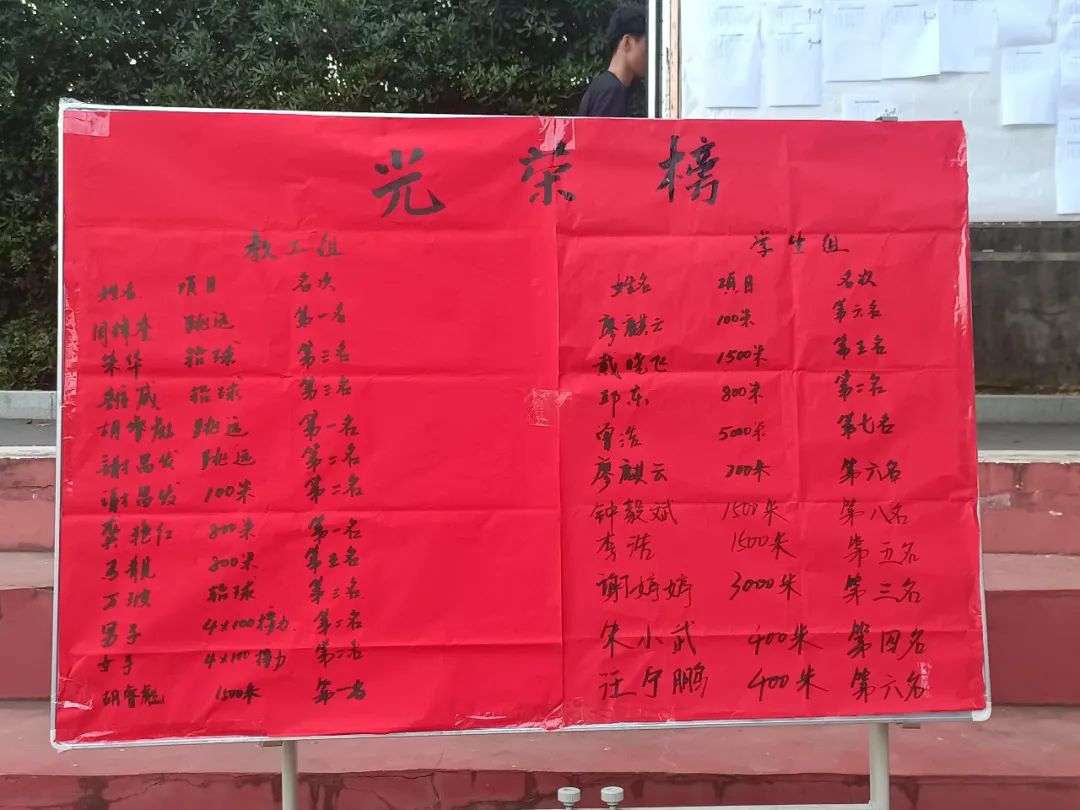 光荣榜
教工组
姓名 项目 名次
跳远 第一名
朱华 铅球 第三名
威 铅球 第三名
胡睿彪 跳远 第一名
谢昌发 跳远 第二名
谢昌发 100米 第二名
龚艳红 800米 第一名
马靓 800米 第五名
万波 铅球 第三名
男子 4×100接力 第二名
女子 4×100接力 第二名
胡睿彪 1500米 第一名
学生组
姓名 项目 名次
廖麒云 100米 第六名
戴晓飞 1500米 第五名
邱东 800米 第二名
曾浩 5000米 第七名
廖麒云 200米 第六名
钟毅斌 1500米 第八名
李浩 1500米 第五名
谢婷婷 3000米 第三名
朱小武 400米 第四名
汪宁鹏 400米 第六名